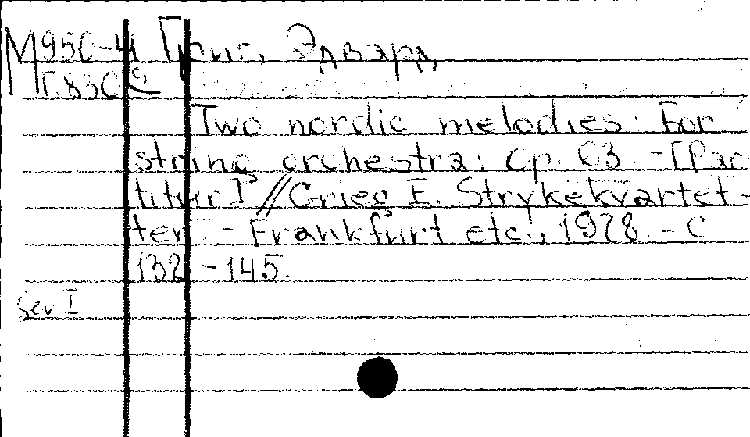 М950-4 Григ, Эдвард
Г830
Two nordic melodies: For
string orchestra: Op. 63. - [Par
titur] // Grieg E. Strykekvartet-
ter. - Frankfurt etc., 1978. - C
132 - 145.
Sev I